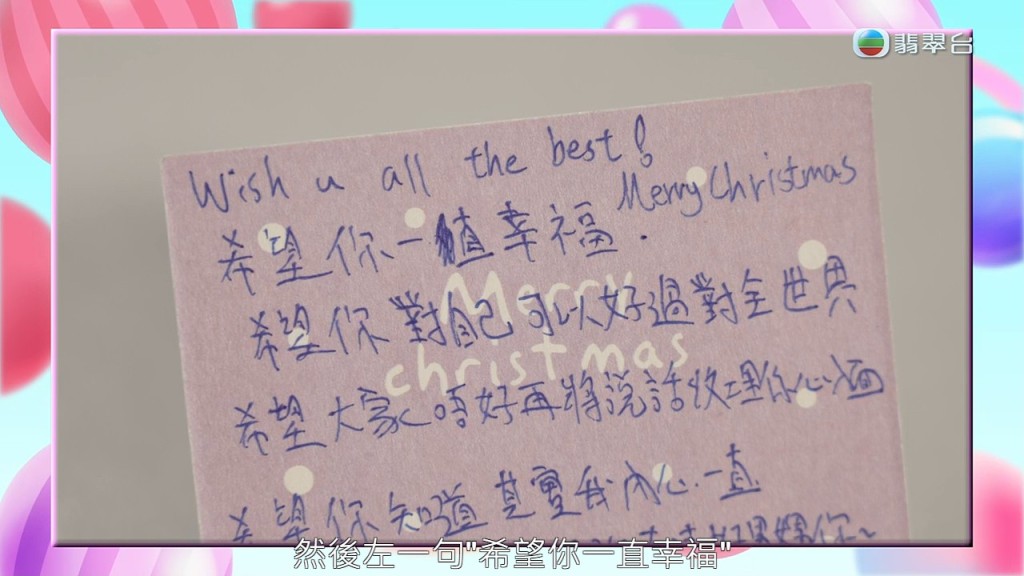 翡翠台
Wish u all the best!
Merry Christmas
希望你一直幸福.
Merry
christmas
希望你對自己可以好過對全世界
希望大家唔好再將說話收埋你心入面
希望你知道其實我內心一直
然後左一句"希望你一直幸福"